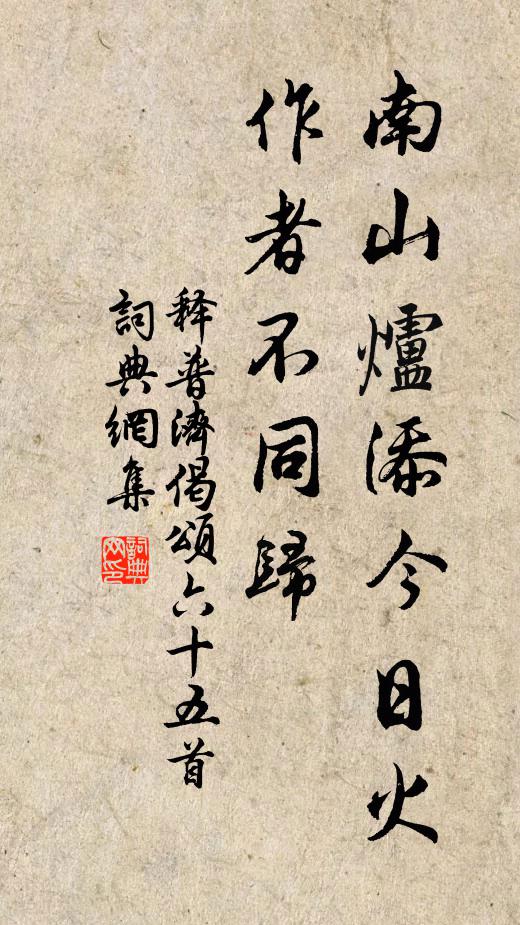 南山爐添今日火
作者不同歸
释普濟偈頌六十五首
詞典網集
詞典網印